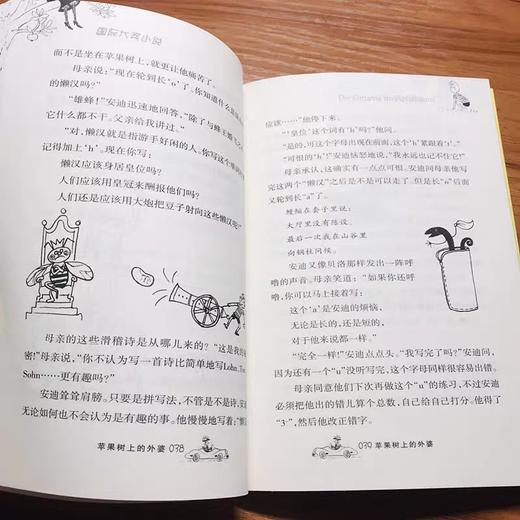 国际大奖小说
而不是坐在苹果树上，就更让他痛苦了。
母亲说：“现在轮到长‘o’了。你知道什么是
的懒汉吗？”
“雄蜂！”安迪迅速地回答，“除了与蜂王
它什么都不干。父亲给我讲过。”
“对，懒汉就是指游手好闲的人。你写这个单词
记得加上‘h’。现在你写：
懒汉应该身居皇位吗？
人们应该用皇冠来酬报他们吗？
人们还是应该用大炮把豆子射向这些懒汉呢？
母亲的这些滑稽诗是从哪儿来的？“这是我的
密！”母亲说，“你不认为写一首诗比简单地写Lohn、Ton、
Sohn……更有趣吗？”
安迪耸耸肩膀。只要是拼写法，不管是不是诗，他
无论如何也不会认为是有趣的事。他慢慢地写着：“懒汉
苹果树上的外婆 038
Die Omama im Apfelbaum
应该……”他停下来。
“‘皇位’这个词有‘h’吗？”他问。
“是的，可这个字母出现在前面，这个‘h’紧跟着‘t’。”
“可恨的‘h’！”安迪恼怒地说，“我永远也记不住它！”
母亲承认，这确实有一点点可恨。安迪同母亲他写
完这两个“懒汉”之后是不是可以走了。但是长“o”后面
又轮到长“a”了。
鳗鲡在套子里说：
大厅里没有陈设。
最后一次我在山谷里
向钢柱问候。
安迪又像贝洛那样发出一阵呼
噜的声音。母亲笑道：“如果你还呼
噜，你可以马上接着写：
这个‘a’是安迪的烦恼，
无论是长的，还是短的，
对于他来说都一样。”
“完全一样！”安迪点点头。“我写完了吗？”安迪问，
因为还有一个“u”没听写完，这个字母同样很容易出错。
母亲同意他们下次再做这个“u”的练习，不过安迪
必须把他出的错儿算个总数，自己给自己打分。他得了
“3”，然后他改正错字。
039 苹果树上的外婆